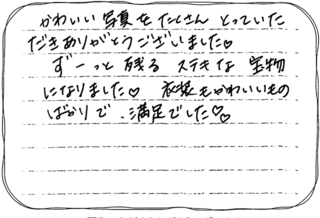 かわいい写真をたくさんとっていた
だきありがとうございました♡
ずーっと残るステキな宝物
になりました♡ 衣装もかわいいもの
ばかりで、満足でした♡♡